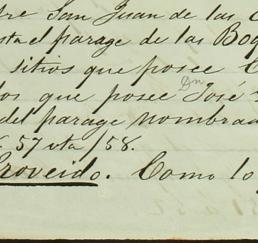 San Juan de las
el parage de las Boq
sitios que posee
os que posee Dn José
del parage nombrad
57 vta/58.
Proveido. Como lo